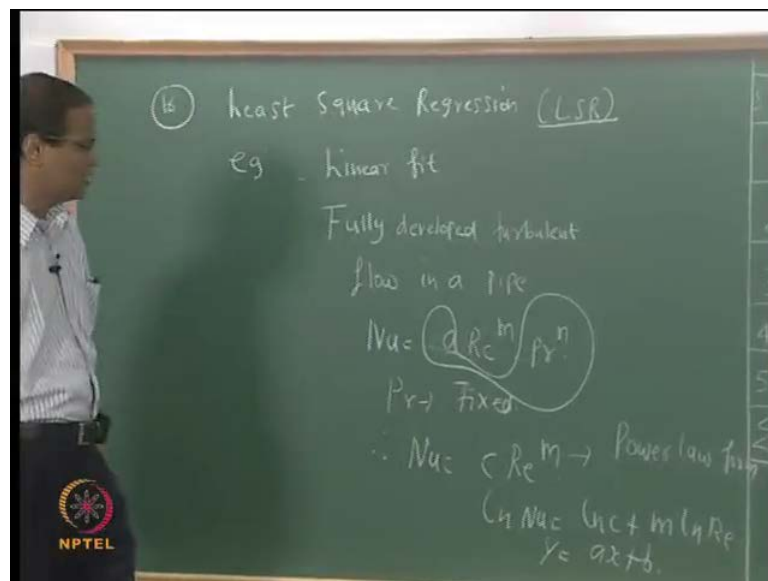 16 Least Square Regression (LSR)
eg Linear fit
Fully developed turbulent
flow in a pipe
Nu = a Re^m Pr^n
Pr → Fixed
∴ Nu = C Re^m → Power law form
ln Nu = ln c + m ln Re
Y = ax + b.
NPTEL